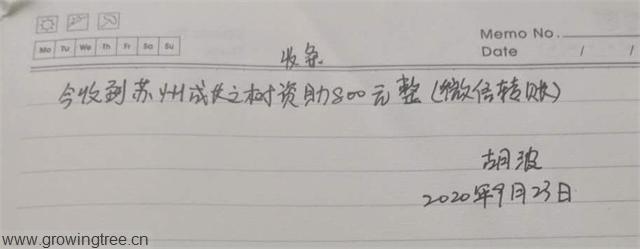 Memo No.
Mo Tu We Th Fr Sa Su
Date / /
收条
今收到苏州成长之树资助800元整(微信转账)
胡波
2020年9月23日
www.growingtree.cn